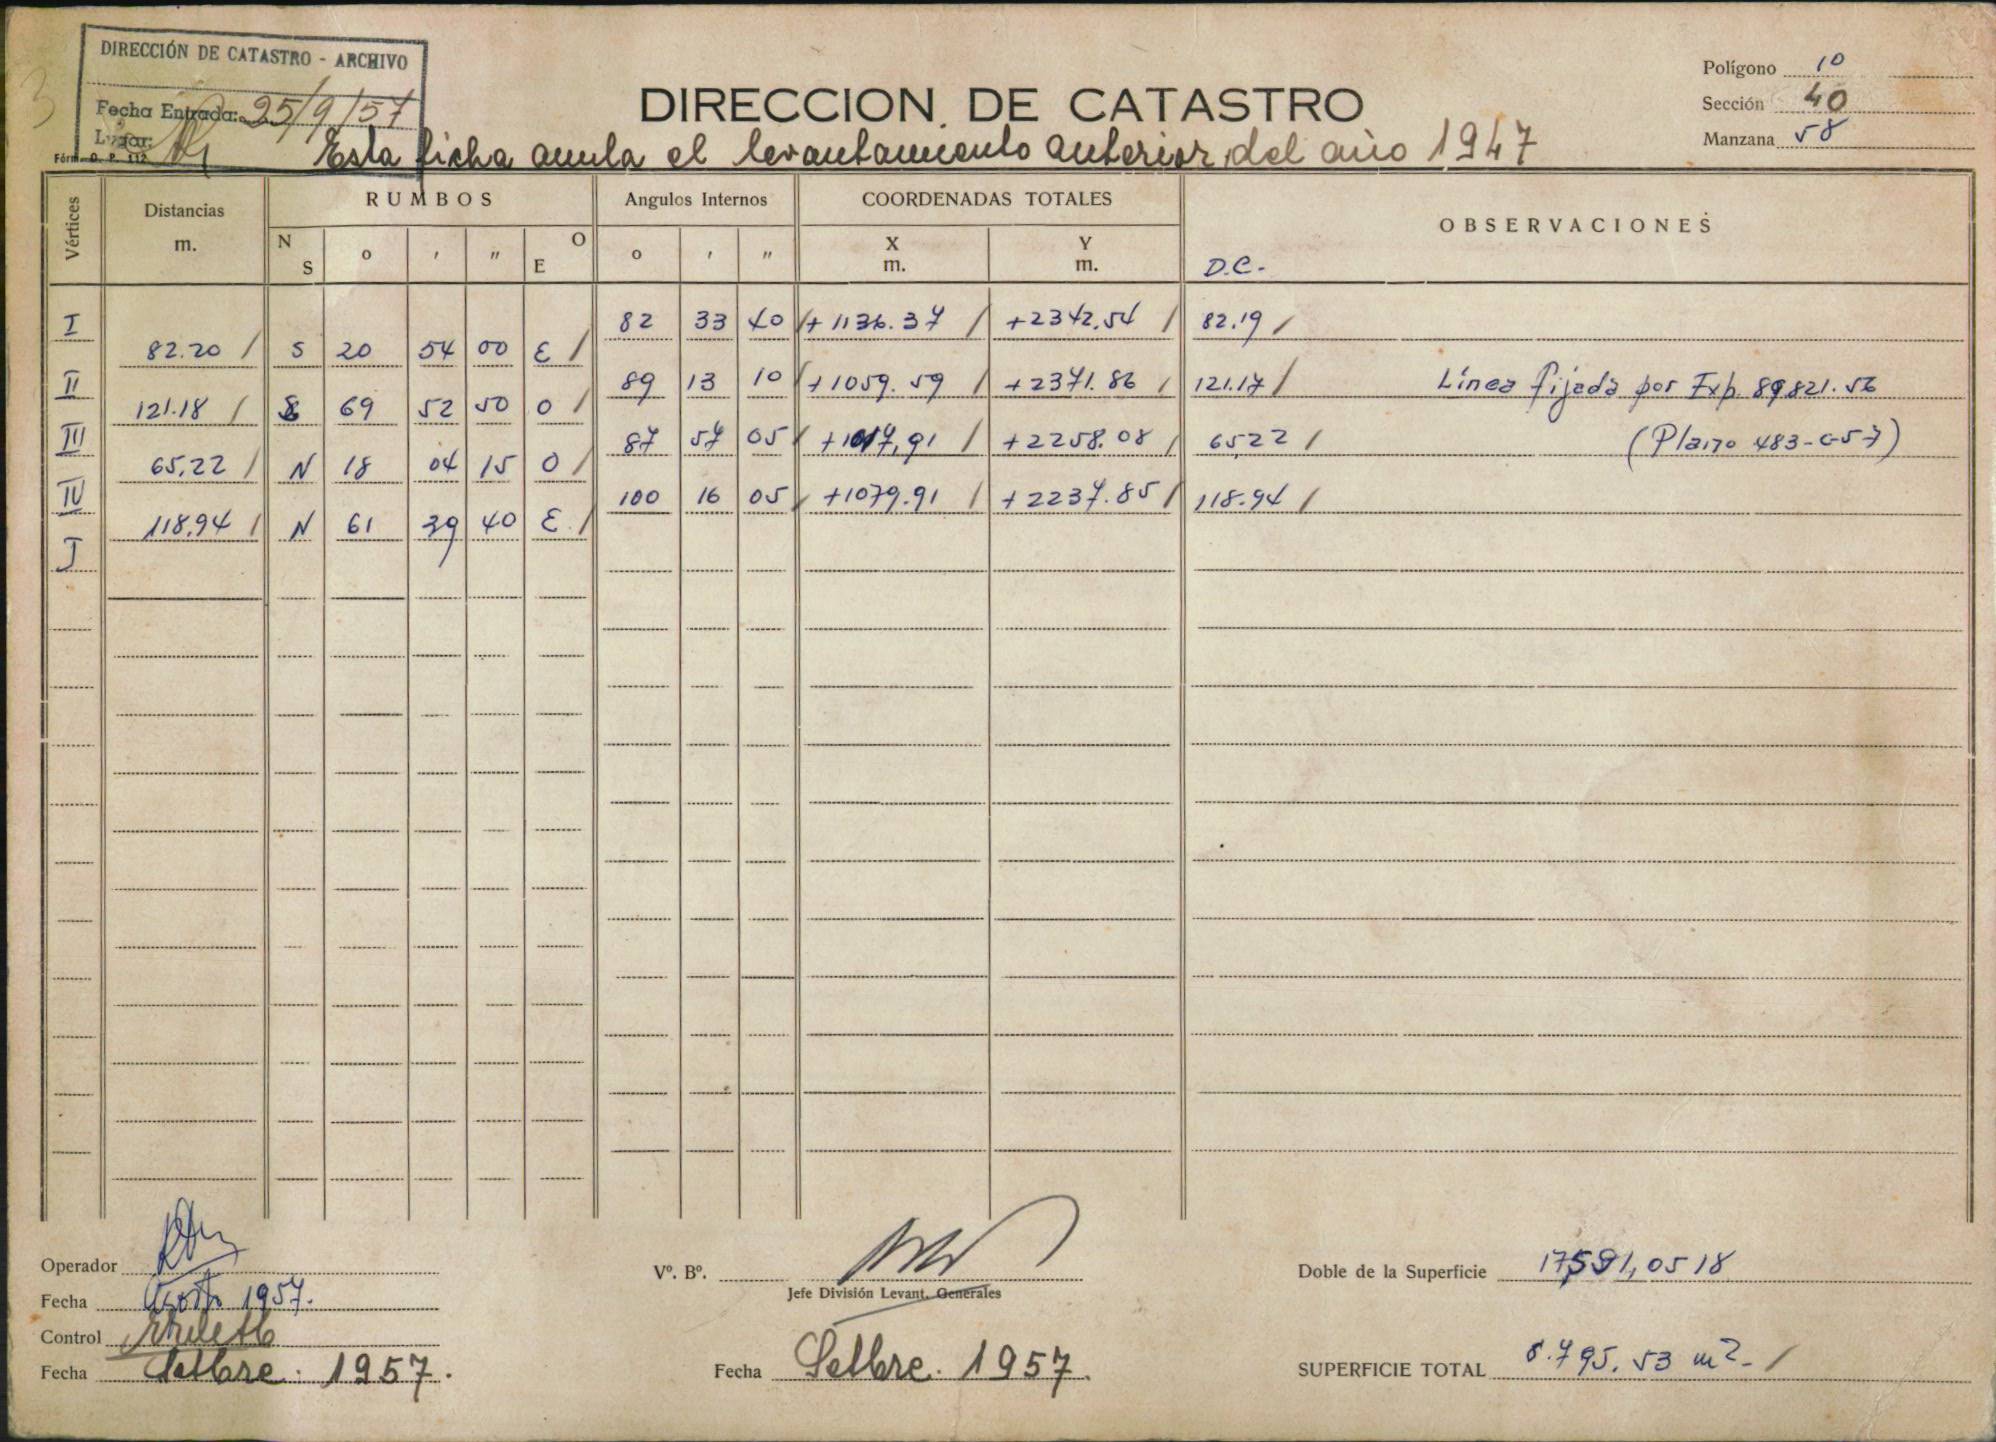 DIRECCIÓN DE CATASTRO - ARCHIVO
Fecha Entrada: 25/9/57
Lugar:
Fórm. O. P. 112
DIRECCION DE CATASTRO
Esta ficha anula el levantamiento anterior del año 1947
Polígono 10
Sección 40
Manzana 58
Vértices Distancias m. RUMBOS Angulos Internos COORDENADAS TOTALES OBSERVACIONES
N S o ' " O E o ' " X m. Y m. D.C.-
I 82 33 40 / + 1136.37 / +2342.54 / 82.19 /
82.20 / S 20 54 00 E /
II 89 13 10 / +1059.59 / +2371.86 / 121.17 / Línea fijada por Exp. 89821.56
121.18 / S 69 52 50 O /
III 87 57 05 / +1017,91 / +2258.08 / 65,22 / (Plano 483-C-57)
65,22 / N 18 04 15 O /
IV 100 16 05 / +1079.91 / +2237.85 / 118.94 /
118,94 / N 61 39 40 E /
I
Operador
Fecha Agosto 1957.
Control
Fecha Setbre. 1957.
Vº. Bº.
Jefe División Levant. Generales
Fecha Setbre. 1957.
Doble de la Superficie 17,591,0518
SUPERFICIE TOTAL 8.795.53 m2- /